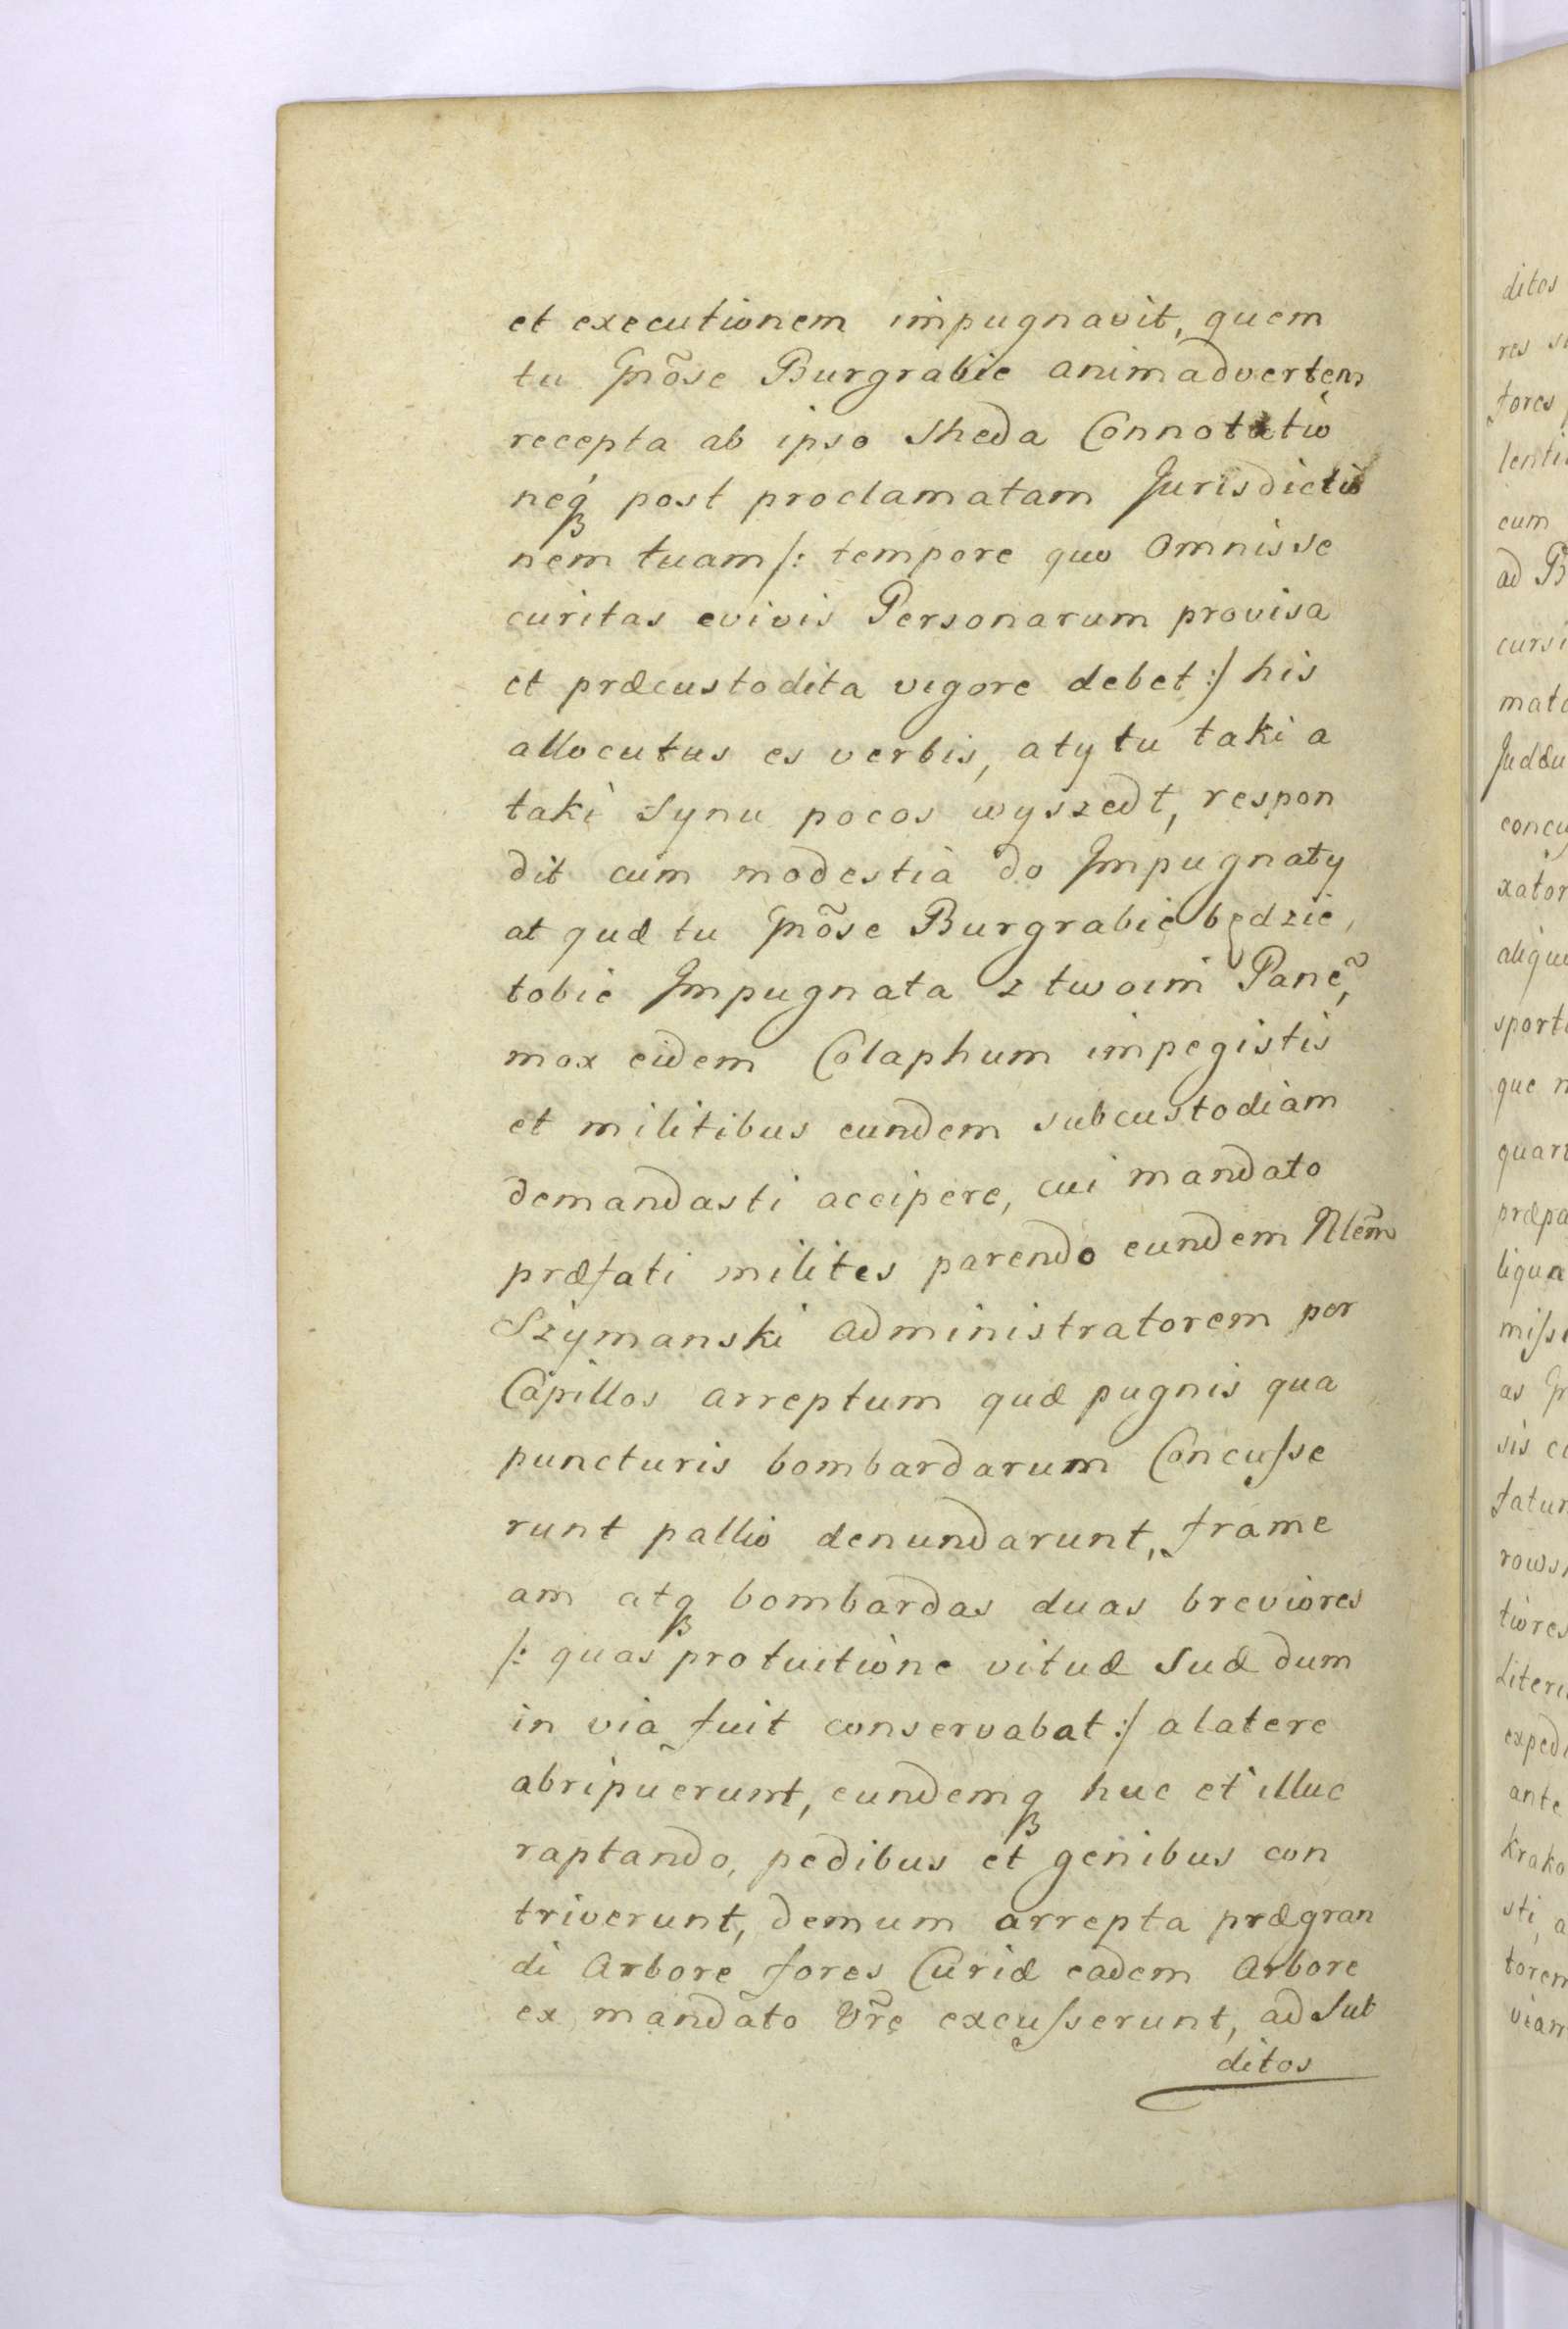 et executionem impugnavit, quem
tu Gnõse Burgrabie animadvertem
recepta ab ipso Sheda Connotatio
neq₃ post proclamatam Jurisdictio
nem tuam /: tempore quo Omnis se
curitas evivis Personarum provisa
et præcustodita vigore debet :/ his
allocutus es verbis, a ty tu taki a
taki Synu pocos wyszedł, respon
dit cum modestia do Impugnaty
at quæ tu Gnõse Burgrabie będzie,
tobie Impugnata z twoim Panẽ,
mox eidem Colaphum impegistis
et militibus eundem subcustodiam
demandasti accipere, cui mandato
præfati milites parendo eundem Nlem̃
Szymanski administratorem per
Capillos arreptum quæ pugnis qua
puncturis bombardarum Concusse
runt pallio denundarunt, frame
am atq₃ bombardas duas breviores
/: quas protuitione vituæ Suæ dum
in via fuit conservabat :/ alatere
abripuerunt, eundemq₃ huc et illuc
raptando, pedibus et genibus con
triverunt, demum arrepta prægran
di Arbore fores Curiæ eadem Arbore
ex mandato Vr̃e excusserunt, ad Sub
ditos
ditos
fores
cum
ad B
cursi
mato
concu
sporta
que n
præpa
liqua
misse
sis co
fatur
rows
tiores
Literi
expedi
ante
krako
sti, a
torem
viam